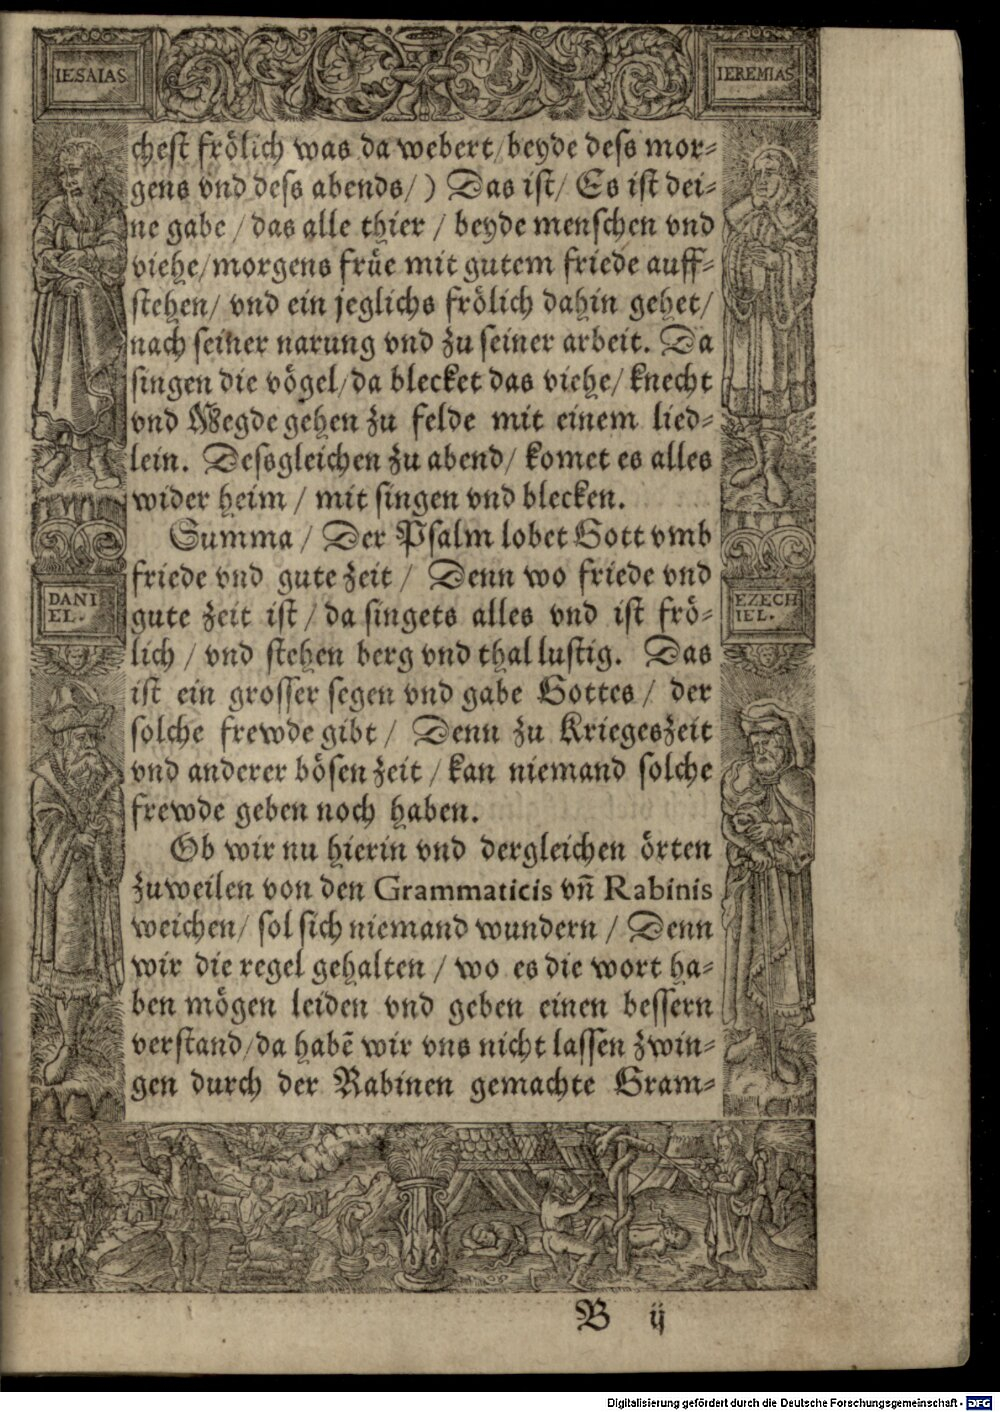 IESAIAS
IEREMIAS
chest frölich was da webert/beyde dess mor⸗
gens vnd dess abends/) Das ist/ Es ist dei⸗
ne gabe / das alle thier / beyde menschen vnd
viehe/morgens früe mit gutem friede auff⸗
stehen/ vnd ein jeglichs frölich dahin gehet/
nach seiner narung vnd zu seiner arbeit. Da
singen die vögel/da blecket das viehe/ knecht
vnd Megde gehen zu felde mit einem lied⸗
lein. Dessgleichen zu abend/ komet es alles
wider heim / mit singen vnd blecken.
Summa / Der Psalm lobet Gott vmb
friede vnd gute zeit / Denn wo friede vnd
gute zeit ist / da singets alles vnd ist frö⸗
lich / vnd stehen berg vnd thal lustig. Das
ist ein grosser segen vnd gabe Gottes / der
solche frewde gibt / Denn zu Kriegeszeit
vnd anderer bösen zeit / kan niemand solche
frewde geben noch haben.
Ob wir nu hierin vnd dergleichen örten
zuweilen von den Grammaticis vñ Rabinis
weichen/ sol sich niemand wundern / Denn
wir die regel gehalten / wo es die wort ha⸗
ben mögen leiden vnd geben einen bessern
verstand/da habẽ wir vns nicht lassen zwin⸗
gen durch der Rabinen gemachte Gram⸗
DANI
EL.
EZECH
IEL.
B ij
Digitalisierung gefördert durch die Deutsche Forschungsgemeinschaft - DFG